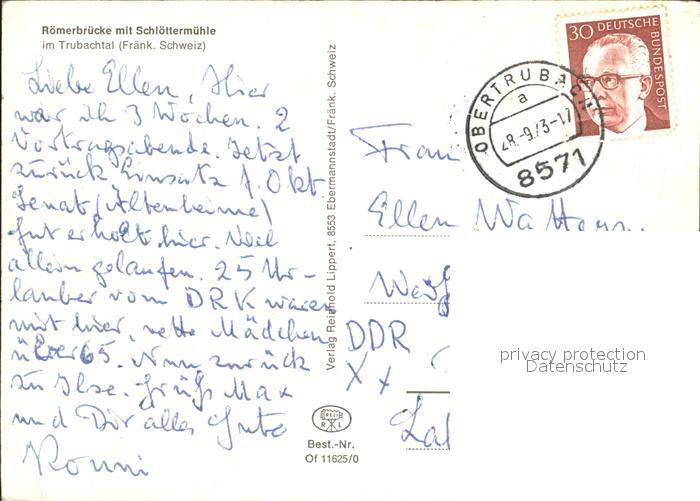 Römerbrücke mit Schlöttermühle
im Trubachtal (Fränk. Schweiz)
Liebe Ellen, Hier
war ich 3 Wochen. 2
Vortragsabende. Jetzt
zurück Einsatz f. Okt.
Senat (Altenheime)
Gut erholt hier. Viel
allein gelaufen. 25 Ur-
lauber vom DRK waren
mit hier, nette Mädchen
über 65. Nun zurück
zu Ilse. Grüß Max
und Dir alles Gute
Ronni
Verlag Reinhold Lippert, 8553 Ebermannstadt/Fränk. Schweiz
R L
Best.-Nr.
Of 11625/0
30 DEUTSCHE BUNDESPOST
OBERTRUBACH
a
28.-9.73-17
8571
Frau
Ellen
DDR
X X
privacy protection
Datenschutz